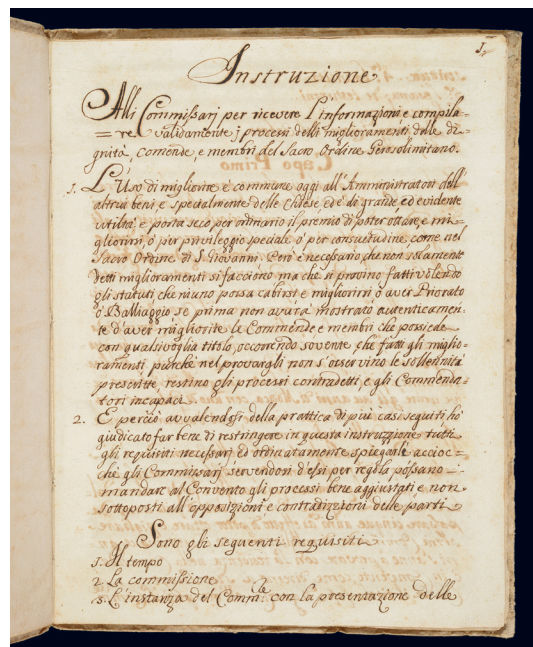 1.
Instruzione
Alli Commissarj per ricevere l'informazioni e compila-
=re validamente i processi delli miglioramenti delle di-
gnità, comende, e membri del Sacro Ordine Gerosolimitano.
1. L'Uso di migliorire è commune oggi all'Amministratori dell'
altrui beni, e specialmente delle Chiese ed è di grande, ed evidente
utilità e porta seco per ordinario il premio di poter ottare, e mi-
gliorirsi, ò per privileggio speciale ò per consuetudine, come nel
Sacro Ordine di S. Giovanni. Però è necessario che non solamente
detti miglioramenti si facciono ma che si provino fatti volendo
gli statuti che niuno possa cabirsi e migliorirsi ò aver Priorato
ò Balliaggio se prima non avurà mostrato autenticamen-
te d'aver migliorite le Commende e membri che possiede
con qualsivoglia titolo, occorrendo sovente che fatti gli miglio-
ramenti purchè nel provargli non s'osservino le sollennità
prescritte restino gli processi contradetti, e gli Commenda-
tori incapaci.
2. E perciò avvalendosi della prattica di più casi seguiti hò
giudicato far bene di restringere in questa instruzzione tutti
gli requisiti necessarj ed ordinatamente spiegarle accioc-
che gli Commissarj servendosi d'essi per regola possano
mandare al Convento gli processi bene aggiustati e non
sottoposti all'opposizioni e contradizzioni delle parti
Sono gli seguenti requisiti
1. Il tempo
2. La commissione
3. L'instanza del Comm.re con la presentazione delle